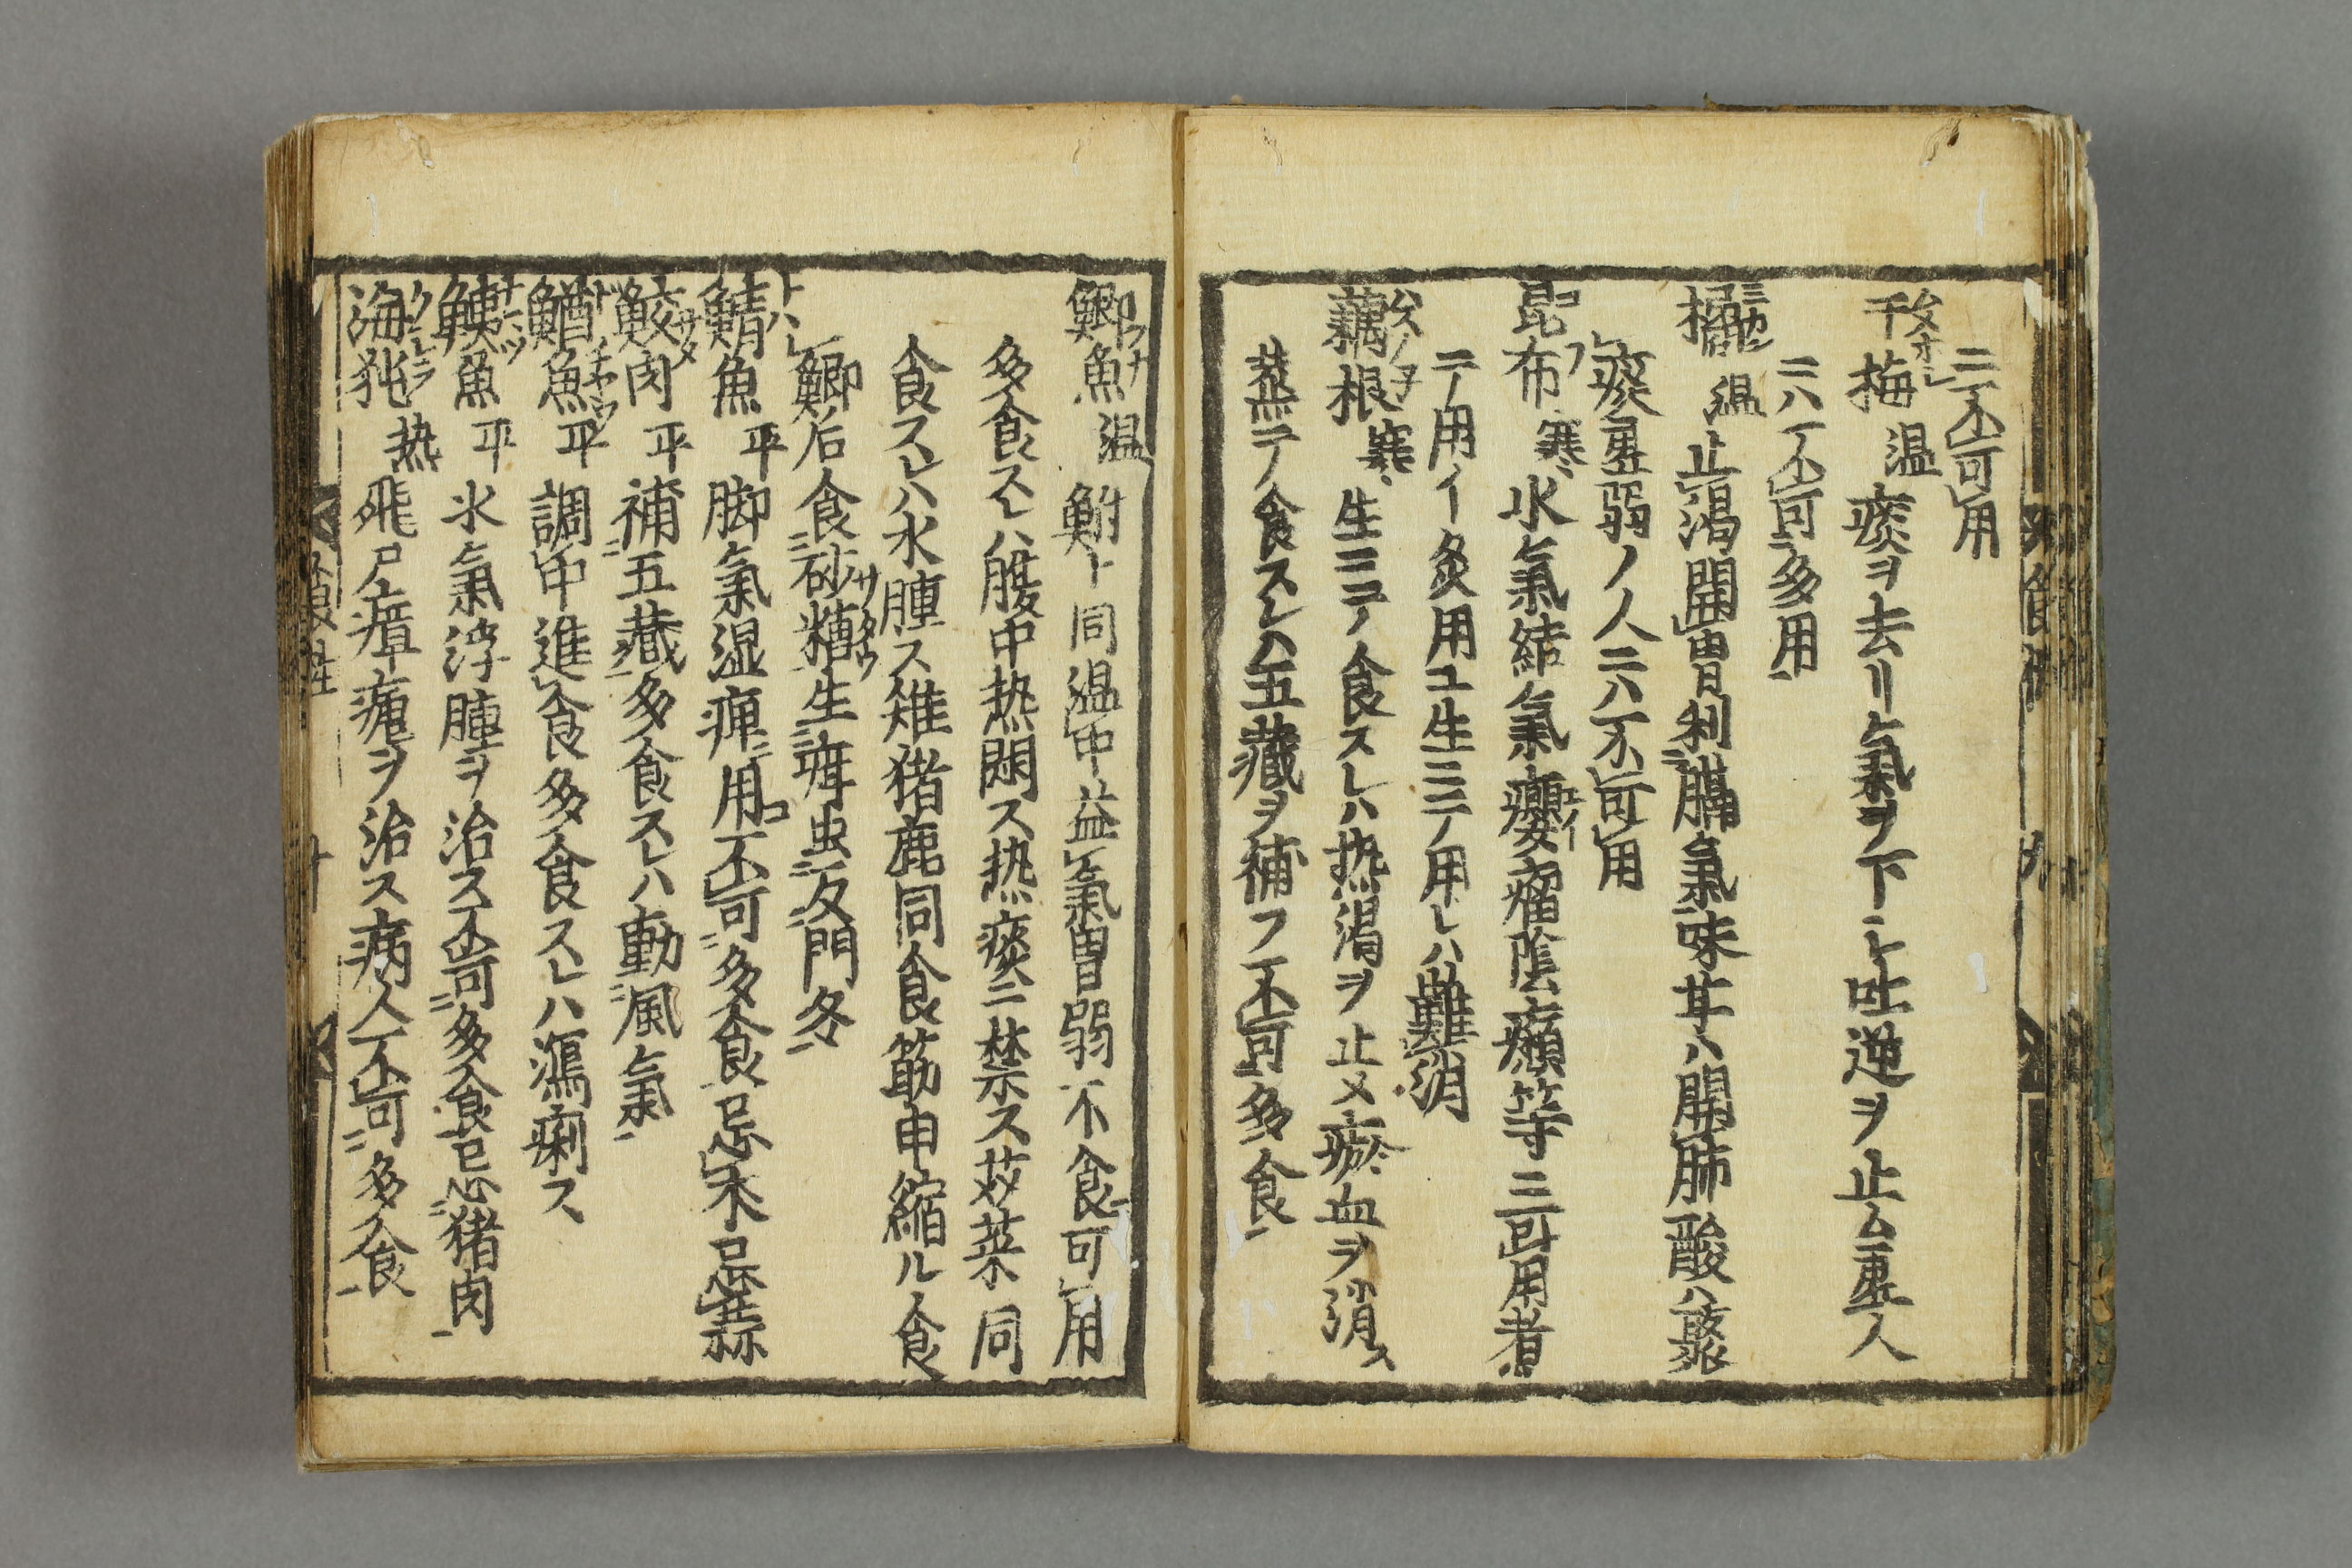 ニ不可用
干梅 温 痰ヲ去リ氣ヲ下シ吐逆ヲ止ム虚人
ニハ不可多用
橘 温 止渇開胃利膈氣味甘ハ開肺酸ハ聚
痰虚弱ノ人ニハ不可用
昆布 寒 水氣結氣癭瘤陰㿗等ニ可用煮
テ用イ炙用ユ生ニテ用レハ難消
藕根 寒 生ニテ食スレハ热渇ヲ止メ瘀血ヲ消ス
蒸テ食スレハ五藏ヲ補フ不可多食
鯽魚 温 鮒ト同温中益氣胃弱不食可用
多食スレハ腹中热悶ス热痰ニ禁ス芥菜同
食スレハ水腫ス雉猪鹿同食筋申縮ル食
鯽后食砂糖生疳虫反門冬
鯖魚 平 脚氣湿痺用不可多食忌朮忌蒜
鮫肉 平 補五藏多食スレハ動風氣
鰌魚 平 調中進食多食スレハ瀉痢ス
鮧魚 平 水氣浮腫ヲ治ス不可多食忌猪肉
海㹠 热 飛尸瘴瘧ヲ治ス病人不可多食